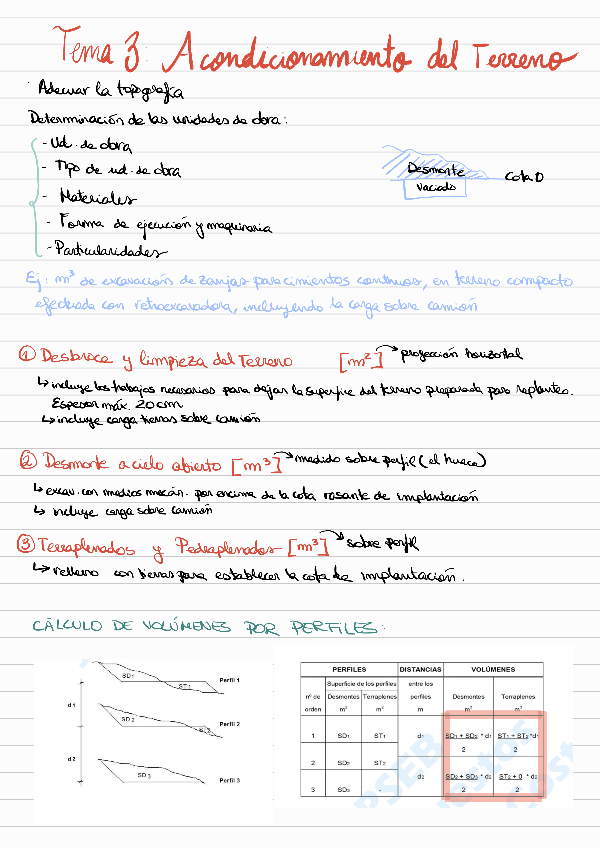 Tema 3: Acondicionamiento del Terreno
· Adecuar la topografía
Determinación de las unidades de obra:
- Ud. de obra
- Tipo de ud. de obra
- Materiales
- Forma de ejecución y maquinaria
- Particularidades
Desmonte
Vaciado
Cota 0
Ej: m³ de excavación de zanjas para cimientos continuos, en terreno compacto
efectuada con retroexcavadora, incluyendo la carga sobre camión
① Desbroce y limpieza del Terreno [m²] → proyección horizontal
↳ incluye los trabajos necesarios para dejar la superficie del terreno preparada para replanteo.
Espesor máx. 20 cm
↳ incluye carga tierras sobre camión
② Desmonte a cielo abierto [m³] → medido sobre perfil (el hueco)
↳ excav. con medios mecán. por encima de la cota rasante de implantación
↳ incluye carga sobre camión
③ Terraplenados y Pedraplenados [m³] → sobre perfil
↳ relleno con tierras para establecer la cota de implantación.
CÁLCULO DE VOLÚMENES POR PERFILES:
SD1
ST1
Perfil 1
d1
SD2
ST2
Perfil 2
d2
SD3
Perfil 3
PERFILES DISTANCIAS VOLÚMENES
Superficie de los perfiles entre los
nº de Desmontes Terraplenes perfiles Desmontes Terraplenes
orden m² m² m m³ m³
1 SD1 ST1 d1 SD1 + SD2 * d1 ST1 + ST2 * d1
2 2
2 SD2 ST2
d2 SD2 + SD3 * d2 ST2 + 0 * d2
3 SD3 - 2 2